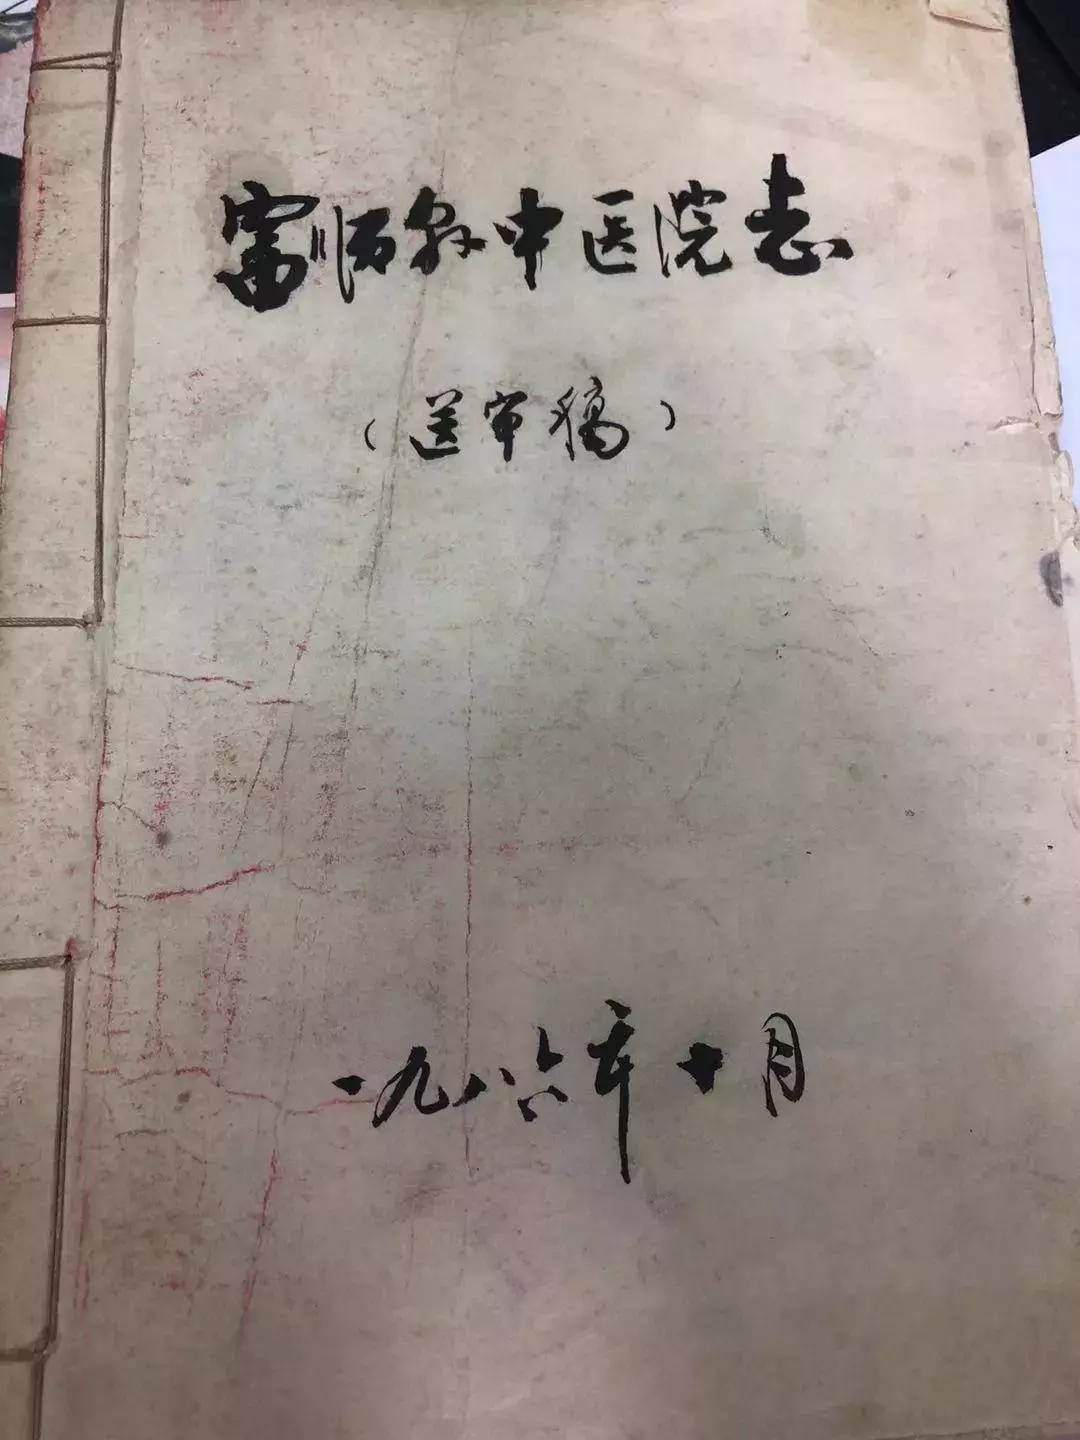 富顺县中医院志
（送审稿）
一九八六年十月